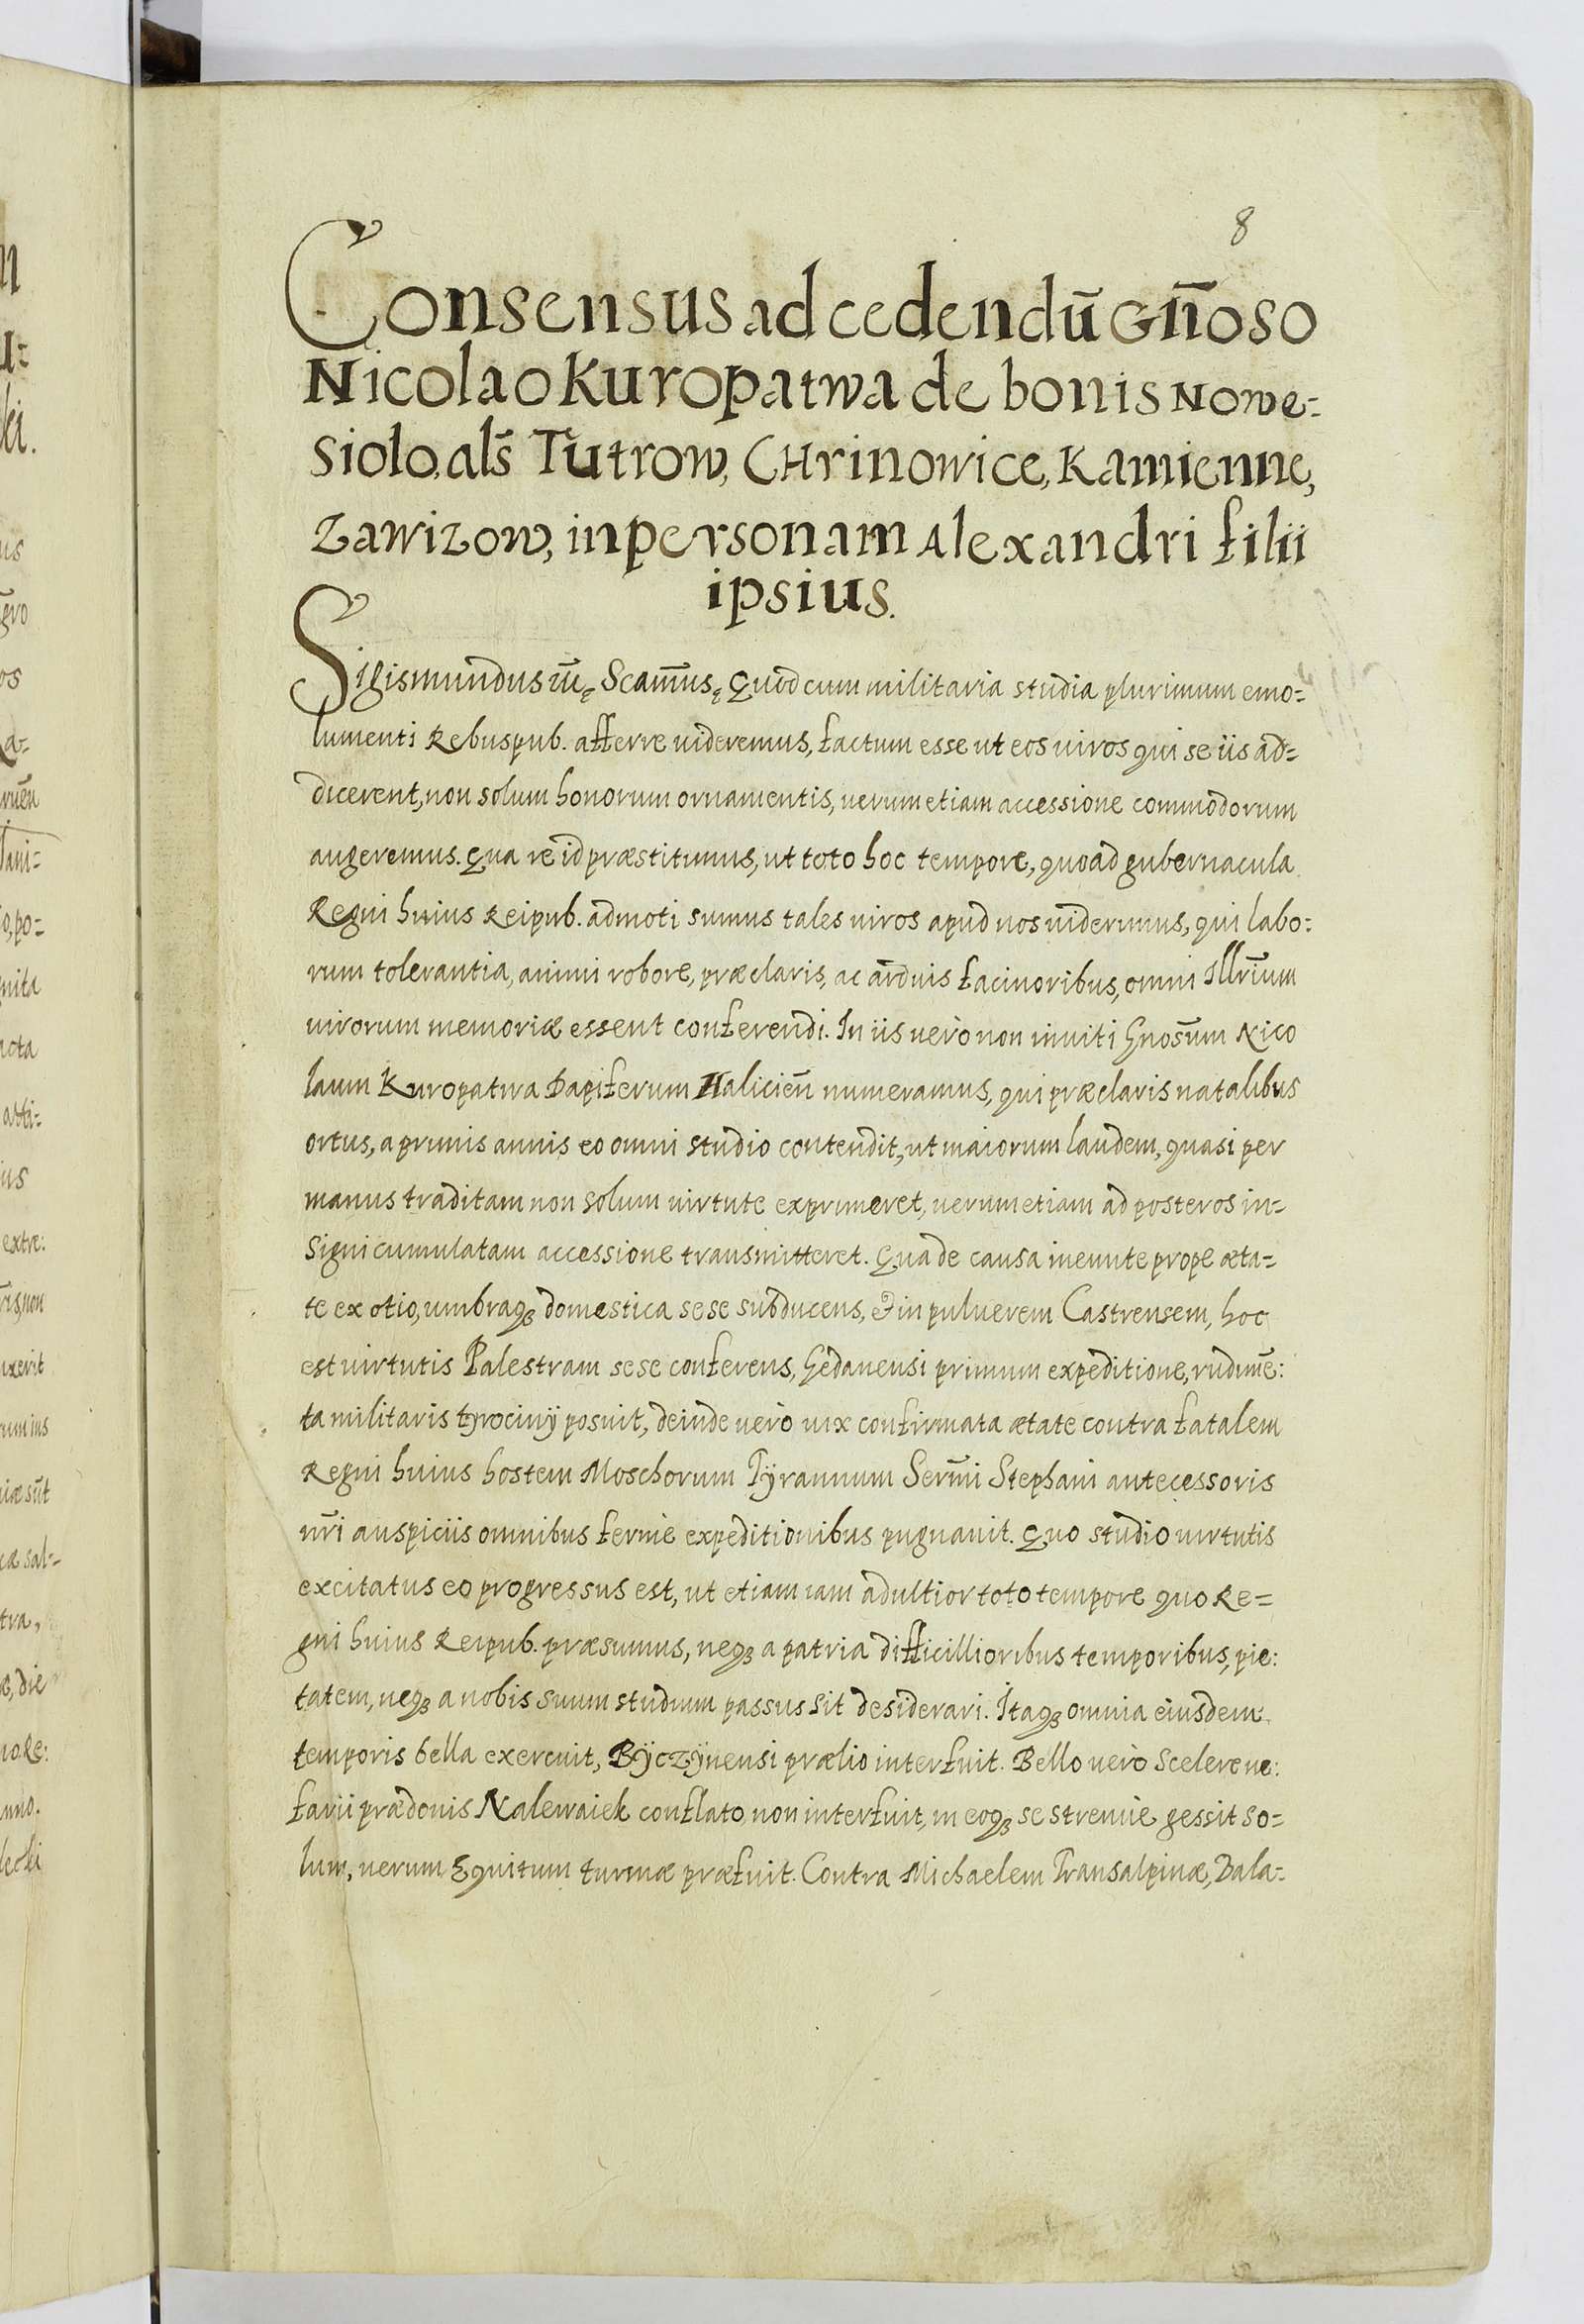 8
Consensus ad cedendū Gn̄oso
Nicolao Kuropatwa de bonis Nowe=
siolo, als̄ Tutrow, CHrinowice, Kamienne,
Zawizow, in personam Alexandri filii
ipsius.
Sigismundus m̄ę Scam̄usę Quod cum militaria studia plurimum emo=
lumenti Rebuspub. afferre uideremus, factum esse ut eos uiros qui se iis ad=
dicerent, non solum honorum ornamentis, uerum etiam accessione commodorum
augeremus. Qua re id præstitimus, ut toto hoc tempore, quo ad gubernacula
Regni huius Reipub. admoti sumus tales uiros apud nos uiderimus, qui labo:
rum tolerantia, animi robore, præclaris, ac arduis facinoribus, omni Illr̄ium
uirorum memoriæ essent conferendi. In iis uerò non inuiti Gnos̄um Nico
laum Kuropatwa Dapiferum Halicien̄ numeramus, qui præclaris natalibus
ortus, a primis annis eo omni studio contendit, ut maiorum laudem, quasi per
manus traditam non solum uirtute exprimeret, uerum etiam ad posteros in=
signi cumulatam accessione transmitteret. Qua de causa ineunte prope æta=
te ex otio, umbraqꝫ domestica sese subducens, & in puluerem Castrensem, hoc
est uirtutis Palestram sese conferens, Gedanensi primum expeditione, rudimē:
ta militaris tyrocinÿ posuit, deinde uerò uix confirmata ætate contra fatalem
Regni huius hostem Moschorum Tÿrannum Serm̄i Stephani antecessoris
nr̄i auspiciis omnibus fermè expeditionibus pugnauit. Quo studio uirtutis
excitatus eo progressus est, ut etiam iam adultior toto tempore quo Re=
gni huius Reipub. præsumus, neqꝫ a patria difficillioribus temporibus, pie:
tatem, neqꝫ a nobis suum studium passus sit desiderari. Itaqꝫ omnia eiusdem
temporis bella exercuit, Bÿczÿnensi prælio interfuit. Bello uerò Scelere ne:
farii prædonis Nalewaiek conflato, non interfuit, in eoqꝫ se strenuè gessit so=
lum, uerum Equitum turmæ præfuit. Contra Michaelem Transalpinæ, Dala=